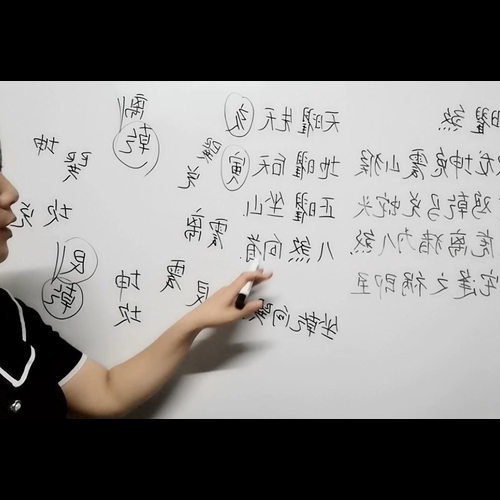 曜煞
龙坤兔震山猴
鸡乾马兑蛇头
虎离猪为八煞
宅逢之祸即至
天曜先天 亥
地曜后天 寅
正曜坐山
八煞向首
坐乾向巽
巽
离
坤
兑
离
坎
震
震
艮
乾
艮
坤
坎
乾
巽
兑